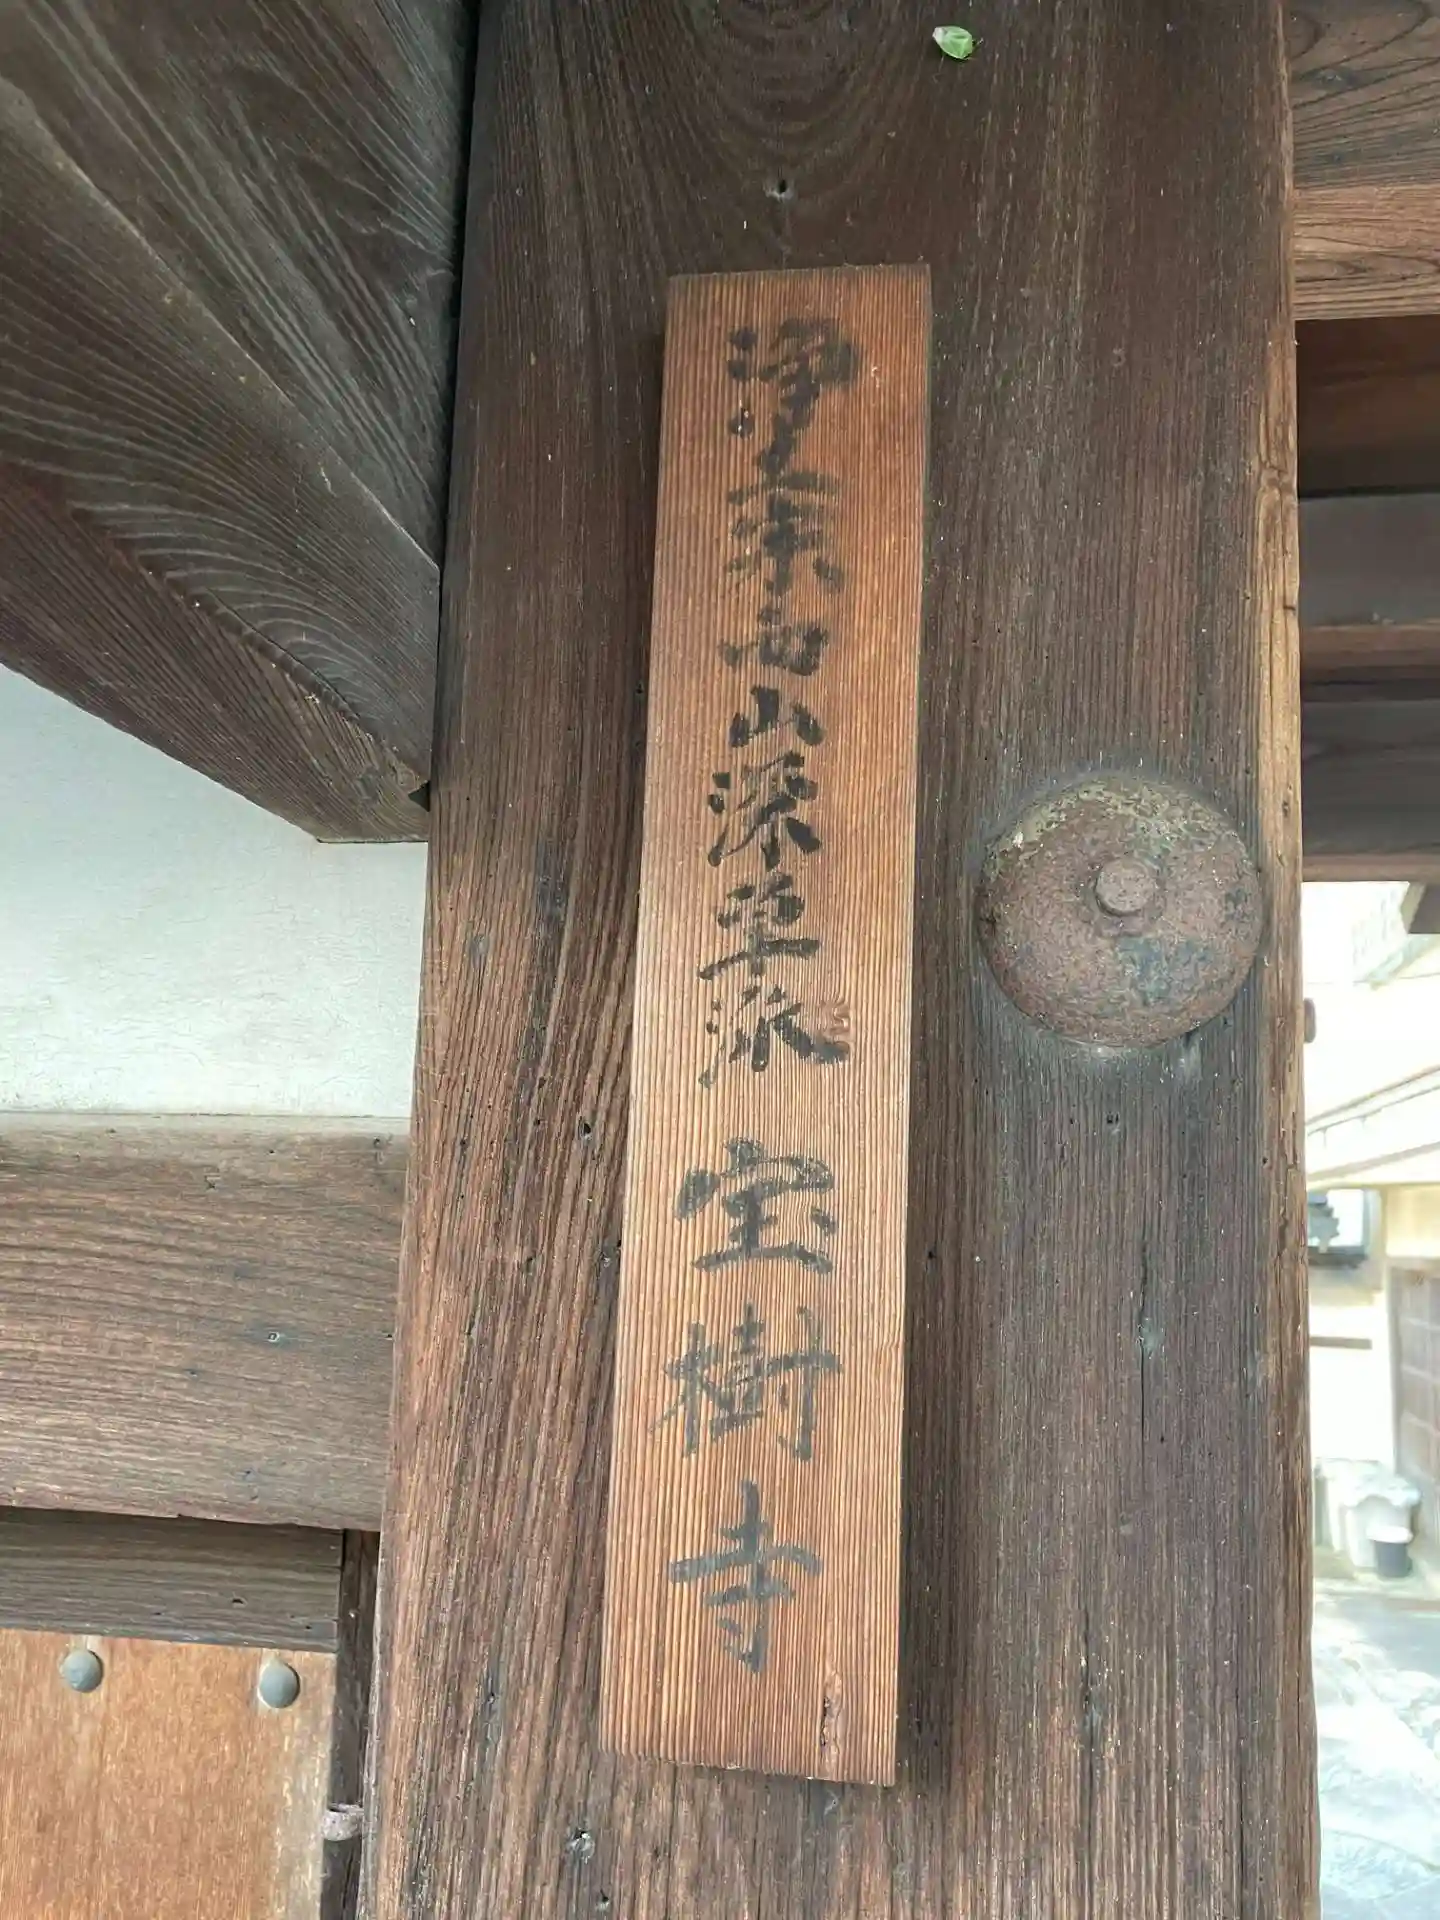 浄土宗西山深草派 宝樹寺